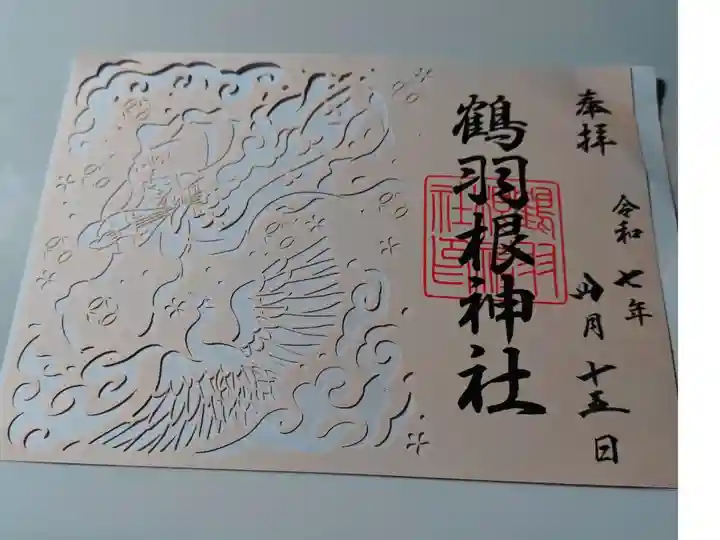 奉拝
令和七年
四月十五日
鶴羽根神社
鶴羽根神社印